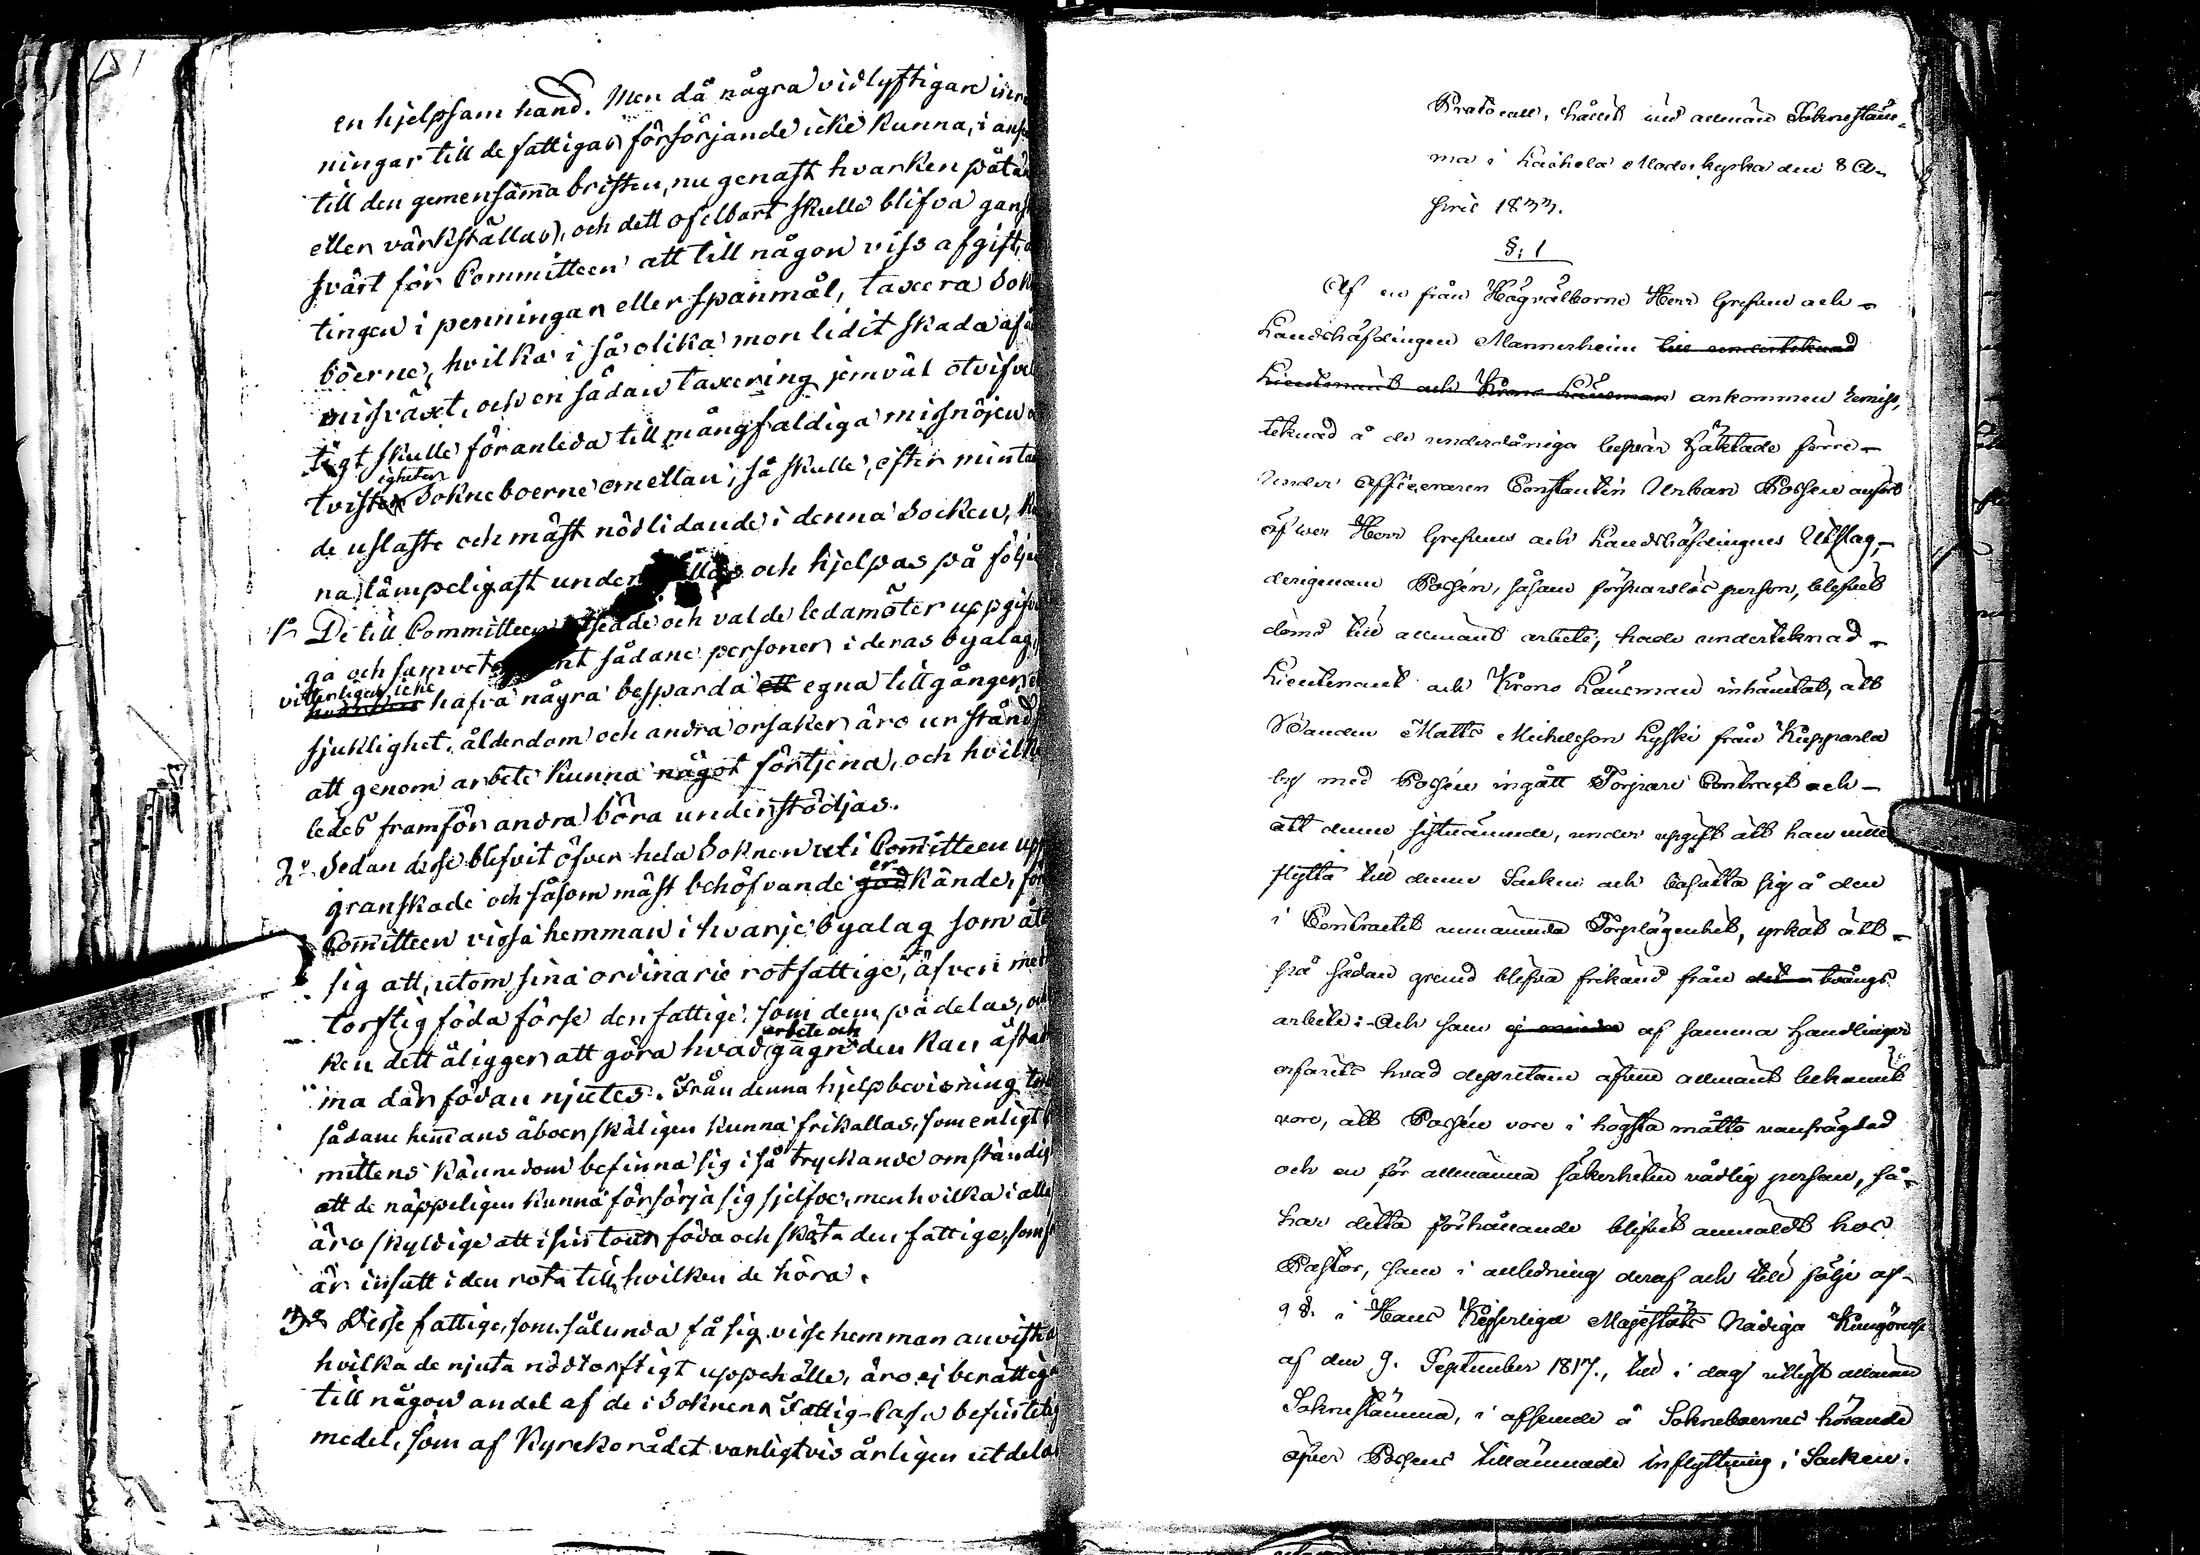 en hjelpsam hand. Men då några vidlyftigare inre
ningar till de fattigas försörjande icke kunna, i anse
till den gemensamma bristen, nu genast hvarken påtän
eller värkställas, och dett ofelbart skulle blifva gans
svårt för Committeen att till någon viss afgift,
tingen i penningar eller spanmål, taxera Sok
boerne, hvilka i så olika mon lidit skada af
misväxt, och en sådan taxering jemväl otvifvel
tigt skulle föranleda till mångfaldiga misnöjen
tvistigheter Sokneboerne emellan; så skulle, efter min tan
de uslaste och mäst nödlidande i denna Socken, ku
na lämpeligast under och hjelpas på följan
1o De till Committeen och valde ledamöter uppgifva
ga och samvets sådane personer i deras byalag,
vitterligen icke hafva några besparda ett egna tillgånger,
sjuklighet, ålderdom och andra orsaker äro ur stånd
att genom arbete kunna något förtjena, och hvilka
ledes framför andra böra understödjas.
2o Sedan desse blefvit öfver hela Soknen uti Committeen upp
granskade och såsom mäst behöfvande erkände, för
Committeen vissa hemman i hvarje byalag som åt
sig att, utom sina ordinarie rotfattige, äfven med
torftig föda förse den fattige, som dem pådelas, och
ken dett åligger att göra hvad arbete och gagn den kan åstad
ma där födan njutes. Från denna hjelpbevisning tor
sådane hemmans åboer skäligen kunna frikallas, som enligt
mitteens kännedom befinna sig i så tryckande omständig
att de näppeligen kunna försörja sig sjelfve, men hvilka i alla
äro skyldige att i sin tour föda och sköta den fattige, som
är insatt i den rota till hvilken de höra.
3o Desse fattige, som sålunda få sig visse hemman anviste
hvilka de njuta nödtorftigt uppehälle, äro ej berättiga
till någon andel af de i Soknens Fattig-Cassa befintelig
medel, som af Kyrckorådet vanligtvis årligen utdelas
Protocoll, hållit vid allmän Soknestäm-
ma i Laihela Moderkyrka den 8 A-
pril 1833.
§. 1
Af en från Högvälborne Herr Grefven och
Landshöfdingen Mannerheim till undertecknad
Lieutenant och Krono Länsman ankommen remiss,
teknad å de underdåniga besvär häktade förre
Under Officeraren Constantin Urban Possén anfört
öfwer Herr Grefvens och Landshöfdingens Utslag,
derigenom Possén, såsom försvarslös person, blifvit
dömd till allmänt arbete; hade undertecknad
Lieutenant och Krono Länsman inhämtat, att
Bonden Matts Michelsson Lyski från Kupparla
by med Possén ingått Torpare Contract och
att denne sistnämnde, under uppgift att han ville
flytta till denne Socken och bosätta sig å den
i Contractet omnämnda Torplägenhet, yrkat att
på sådan grund blifva frikänd från det tvångs
arbete: Och som ej mindre af samma Handlingar
erfarits hvad dessutom äfven allmänt bekannt
vore, att Possén vore i högsta måtto vanfrägdad
och en för allmänna säkerheten vådlig person, så
har detta förhållande blifvit anmäldt hos
Pastor, som i anledning deraf och till följe af
9 §. i Hans Kejserliga Majestäts Nådiga Kungörelse
af den 9. September 1817., till i dag utlyst allmän
Soknestämma, i afseende å Sokneboernes hörande
öfver Posséns tillämnade inflyttning i Socken.